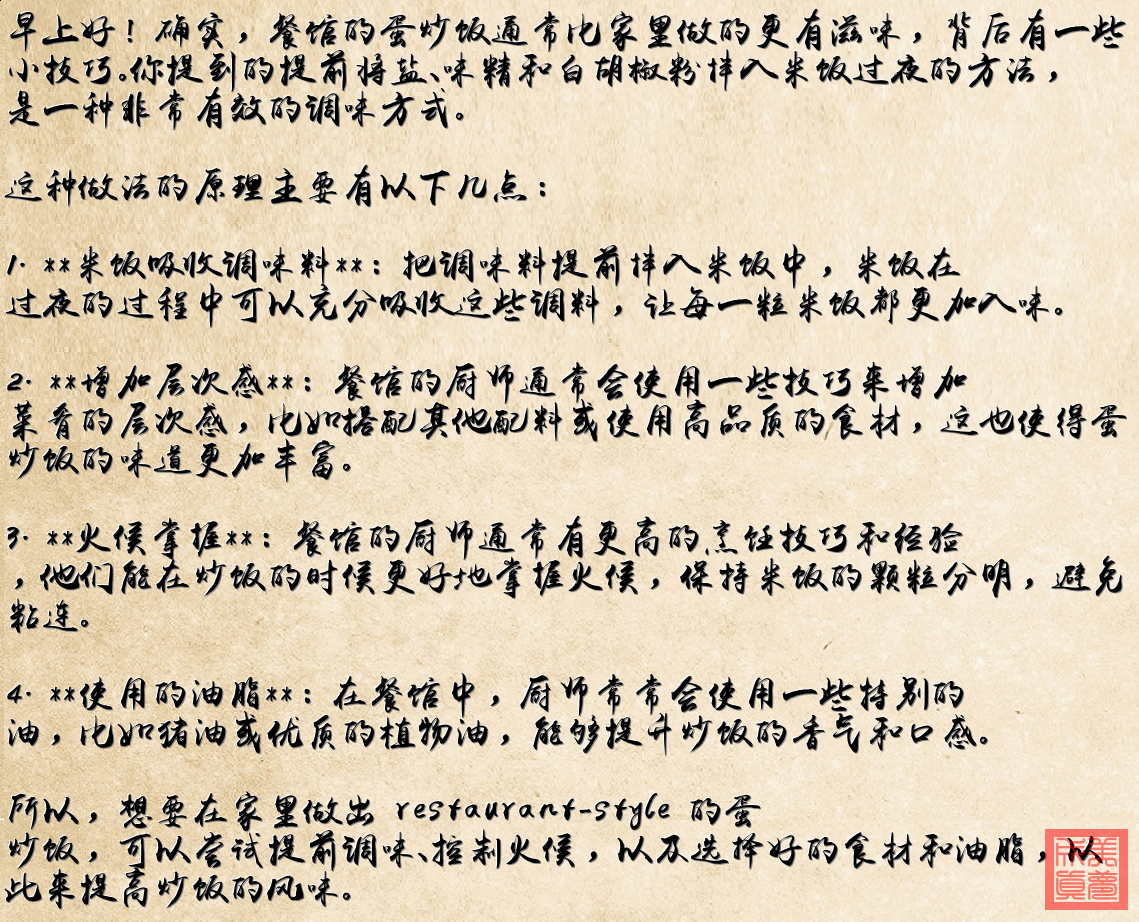 早上好！确实，餐馆的蛋炒饭通常比家里做的更有滋味，背后有一些
小技巧。你提到的提前将盐、味精和白胡椒粉拌入米饭过夜的方法，
是一种非常有效的调味方式。
这种做法的原理主要有以下几点：
1. **米饭吸收调味料**：把调味料提前拌入米饭中，米饭在
过夜的过程中可以充分吸收这些调料，让每一粒米饭都更加入味。
2. **增加层次感**：餐馆的厨师通常会使用一些技巧来增加
菜肴的层次感，比如搭配其他配料或使用高品质的食材，这也使得蛋
炒饭的味道更加丰富。
3. **火候掌握**：餐馆的厨师通常有更高的烹饪技巧和经验
，他们能在炒饭的时候更好地掌握火候，保持米饭的颗粒分明，避免
粘连。
4. **使用的油脂**：在餐馆中，厨师常常会使用一些特别的
油，比如猪油或优质的植物油，能够提升炒饭的香气和口感。
所以，想要在家里做出 restaurant-style 的蛋
炒饭，可以尝试提前调味、控制火候，以及选择好的食材和油脂，以
此来提高炒饭的风味。